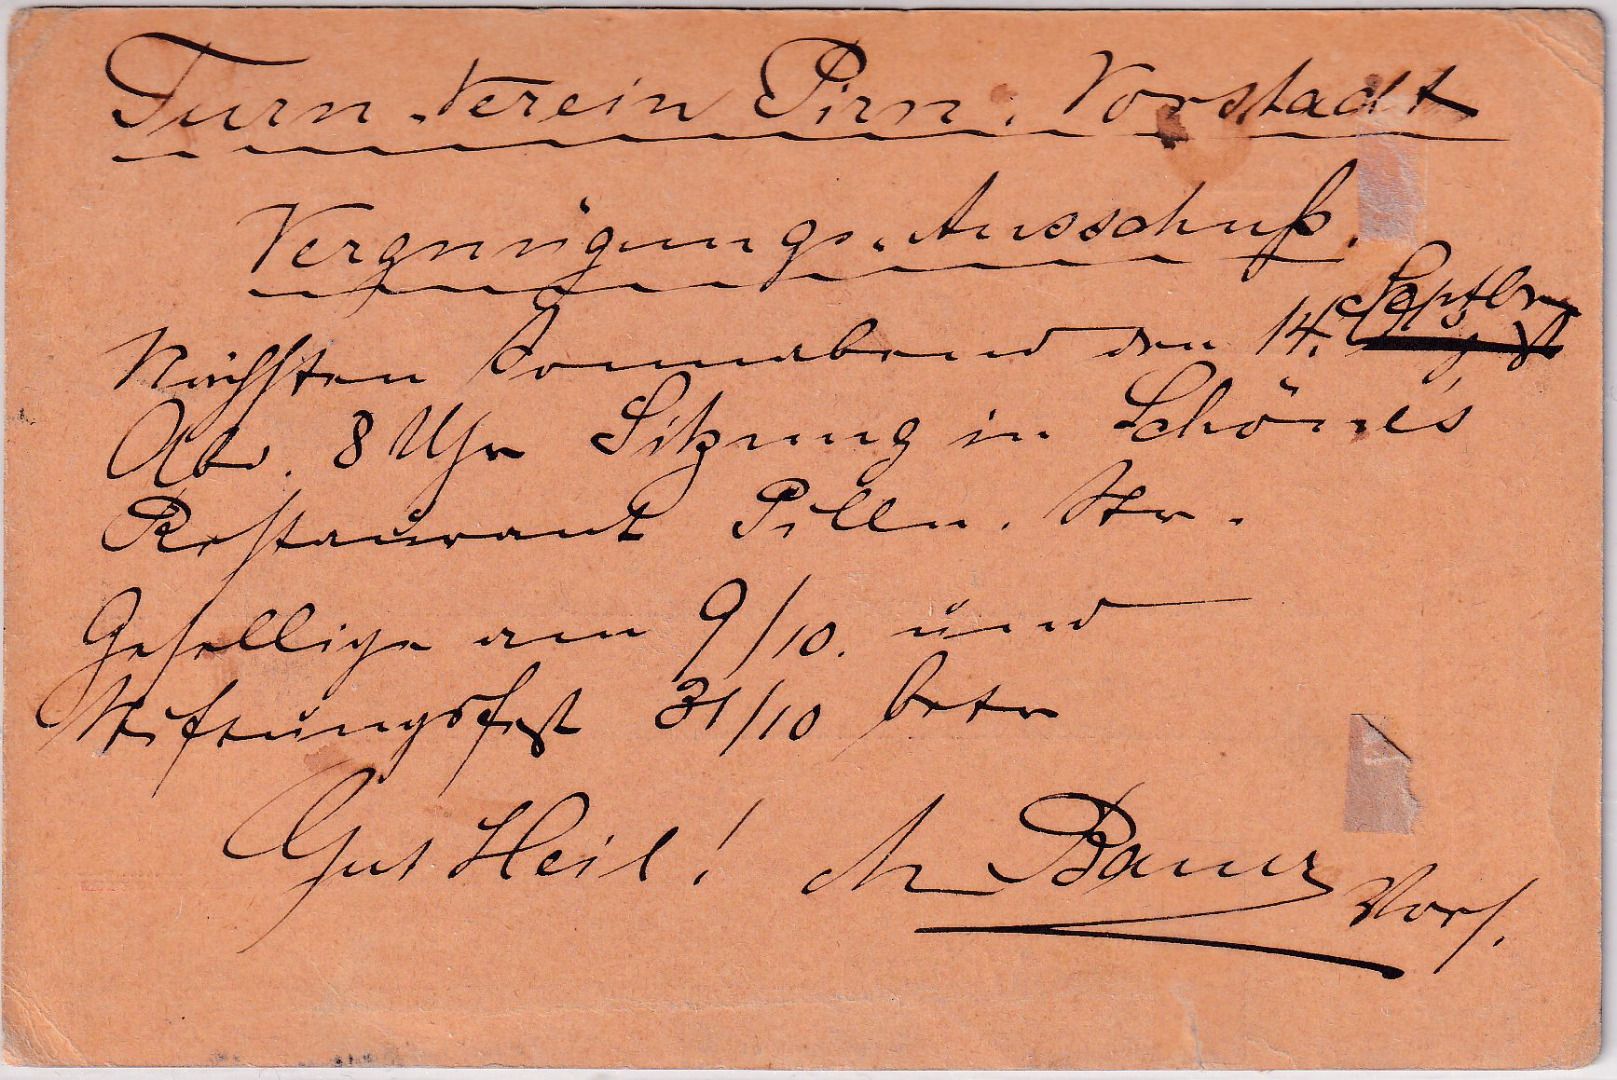 Turn-Verein Pirn. Vorstadt
Vergnügungs-Ausschuß.
Nächsten Sonnabend den 14. Septbr
Abd. 8 Uhr Sitzung in Schöne's
Restaurant Pilln. Str.
Gesellige am 9/10. und
Stiftungsfest 31/10 betr
Gut Heil! Bauer Vors.